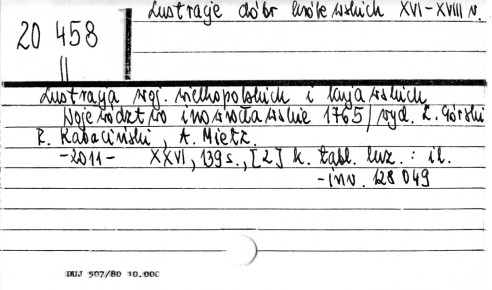 Lustracje dóbr królewskich XVI-XVIII w.
20 458
II
Lustracja woj. wielkopolskich i kujawskich
Województwo inowrocławskie 1765/ wyd. Z. Górski
R. Kabaciński, A. Mietz.
-2011- XXVI, 139 s., [2] k. tabl. luz. : il.
-inv. 128 049
DUJ 507/80 10.000